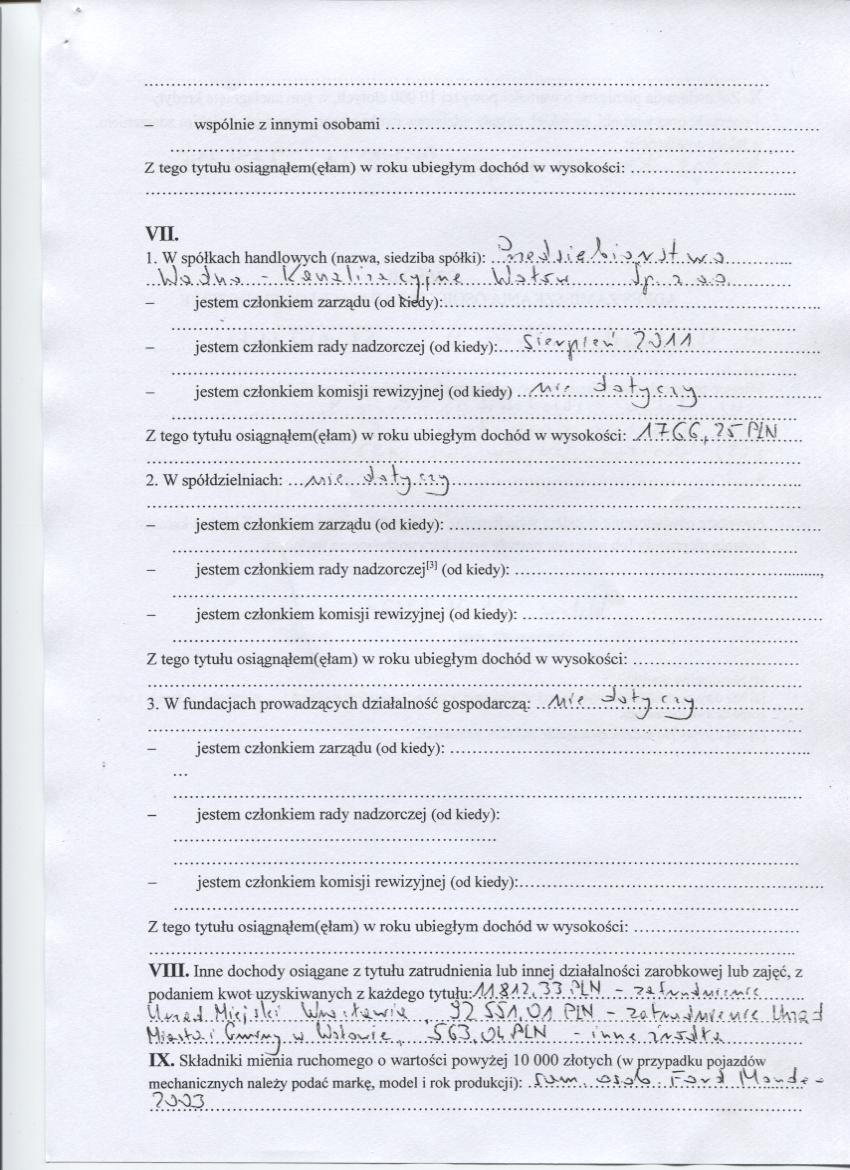 ................................................................
– wspólnie z innymi osobami ................................................................
................................................................
Z tego tytułu osiągnąłem(ęłam) w roku ubiegłym dochód w wysokości: ................................
................................................................
VII.
1. W spółkach handlowych (nazwa, siedziba spółki): Przedsiebiorstwo
Wodno - Kanalizacyjne Wołów Sp. z o.o.
– jestem członkiem zarządu (od kiedy):................................
................................................................
– jestem członkiem rady nadzorczej (od kiedy):.... sierpień 2011
................................................................
– jestem członkiem komisji rewizyjnej (od kiedy) ...nie dotyczy
................................................................
Z tego tytułu osiągnąłem(ęłam) w roku ubiegłym dochód w wysokości: 1766,25 PLN
................................................................
2. W spółdzielniach: ...nie dotyczy................................
................................................................
– jestem członkiem zarządu (od kiedy): ................................
................................................................
– jestem członkiem rady nadzorczej[3] (od kiedy): ................................,
................................................................
– jestem członkiem komisji rewizyjnej (od kiedy): ................................
................................................................
Z tego tytułu osiągnąłem(ęłam) w roku ubiegłym dochód w wysokości: ................................
................................................................
3. W fundacjach prowadzących działalność gospodarczą: ..nie dotyczy................
................................................................
– jestem członkiem zarządu (od kiedy): ................................
...
................................................................
– jestem członkiem rady nadzorczej (od kiedy):
................................................................
................................................................
– jestem członkiem komisji rewizyjnej (od kiedy):................................
................................................................
Z tego tytułu osiągnąłem(ęłam) w roku ubiegłym dochód w wysokości: ................................
................................................................
VIII. Inne dochody osiągane z tytułu zatrudnienia lub innej działalności zarobkowej lub zajęć, z
podaniem kwot uzyskiwanych z każdego tytułu: 11.812,33 PLN - zatrudnienie
Urząd Miejski Wrocławia, 92 551,01 PLN - zatrudnienie Urząd
Miasta i Gminy w Wołowie, 563,04 PLN - inne źródła
IX. Składniki mienia ruchomego o wartości powyżej 10 000 złotych (w przypadku pojazdów
mechanicznych należy podać markę, model i rok produkcji): sam. osob. Ford Mondeo
2003